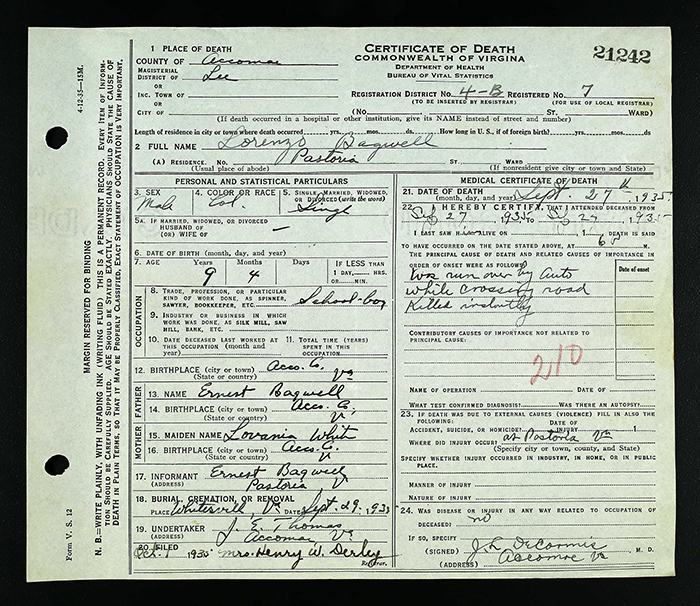 CERTIFICATE OF DEATH
COMMONWEALTH OF VIRGINIA
DEPARTMENT OF HEALTH
BUREAU OF VITAL STATISTICS
21242
1 PLACE OF DEATH
COUNTY OF Accomac
MAGISTERIAL DISTRICT OF Lee
OR
INC. TOWN OF
OR
CITY OF
REGISTRATION DISTRICT NO. 4-B REGISTERED NO. 7
(TO BE INSERTED BY REGISTRAR) (FOR USE OF LOCAL REGISTRAR)
(NO. ST. WARD)
(If death occurred in a hospital or other institution, give its NAME instead of street and number)
Length of residence in city or town where death occurred yrs. mos. ds. How long in U. S., if of foreign birth? yrs. mos. ds.
2 FULL NAME Lorenzo Bagwell
(A) RESIDENCE. No. Pastoria ST. WARD
(Usual place of abode) (If nonresident give city or town and State)
PERSONAL AND STATISTICAL PARTICULARS
3. SEX 4. COLOR OR RACE 5. SINGLE, MARRIED, WIDOWED, OR DIVORCED (write the word)
Male Col. Single
5A. IF MARRIED, WIDOWED, OR DIVORCED
HUSBAND OF
(OR) WIFE OF —
6. DATE OF BIRTH (month, day, and year)
7. AGE Years Months Days IF LESS THAN
1 DAY, HRS.
OR MIN.
9 4
OCCUPATION
8. TRADE, PROFESSION, OR PARTICULAR
KIND OF WORK DONE, AS SPINNER,
SAWYER, BOOKKEEPER, ETC. School-boy
9. INDUSTRY OR BUSINESS IN WHICH
WORK WAS DONE, AS SILK MILL, SAW
MILL, BANK, ETC.
10. DATE DECEASED LAST WORKED AT
THIS OCCUPATION (month and
year)
11. TOTAL TIME (YEARS)
SPENT IN THIS
OCCUPATION
12. BIRTHPLACE (city or town) Acco. Co.
(State or country) Va
FATHER
13. NAME Ernest Bagwell
14. BIRTHPLACE (city or town) Acco. Co.
(State or country) V
MOTHER
15. MAIDEN NAME Lovania White
16. BIRTHPLACE (city or town) Acco. C.
(State or country) V
17. INFORMANT Ernest Bagwell
(ADDRESS) Pastoria V
18. BURIAL, CREMATION, OR REMOVAL
PLACE Va DATE Sept. 29, 1935
19. UNDERTAKER J. E. Thomas
(ADDRESS) Accomac Va
20. FILED Oct. 1 1935 Mrs. Henry W. Derby
Registrar.
MEDICAL CERTIFICATE OF DEATH
21. DATE OF DEATH
(month, day, and year) Sept 27th 1935
22. I HEREBY CERTIFY, THAT I ATTENDED DECEASED FROM
27 1935 TO 27 1935
I LAST SAW H im ALIVE ON 1 DEATH IS SAID
TO HAVE OCCURRED ON THE DATE STATED ABOVE, AT 6 P M.
THE PRINCIPAL CAUSE OF DEATH AND RELATED CAUSES OF IMPORTANCE IN
ORDER OF ONSET WERE AS FOLLOWS:
Date of onset
Was run over by Auto
while crossing road
Killed instantly
CONTRIBUTORY CAUSES OF IMPORTANCE NOT RELATED TO
PRINCIPAL CAUSE:
210
NAME OF OPERATION DATE OF
WHAT TEST CONFIRMED DIAGNOSIS? WAS THERE AN AUTOPSY?
23. IF DEATH WAS DUE TO EXTERNAL CAUSES (VIOLENCE) FILL IN ALSO THE
FOLLOWING:
ACCIDENT, SUICIDE, OR HOMICIDE? DATE OF INJURY 1
WHERE DID INJURY OCCUR? at Pastoria Va
(Specify city or town, county, and State)
SPECIFY WHETHER INJURY OCCURRED IN INDUSTRY, IN HOME, OR IN PUBLIC
PLACE.
MANNER OF INJURY
NATURE OF INJURY
24. WAS DISEASE OR INJURY IN ANY WAY RELATED TO OCCUPATION OF
DECEASED? no
IF SO, SPECIFY
(SIGNED) J. L. DeCormis M. D.
(ADDRESS) Accomac Va
4-12-35—15M.
MARGIN RESERVED FOR BINDING
N. B.—WRITE PLAINLY, WITH UNFADING INK (WRITING FLUID) THIS IS A PERMANENT RECORD. EVERY ITEM OF INFORM-
ATION SHOULD BE CAREFULLY SUPPLIED. AGE SHOULD BE STATED EXACTLY. PHYSICIANS SHOULD STATE THE CAUSE OF
DEATH IN PLAIN TERMS, SO THAT IT MAY BE PROPERLY CLASSIFIED. EXACT STATEMENT OF OCCUPATION IS VERY IMPORTANT.
Form V. S. 12